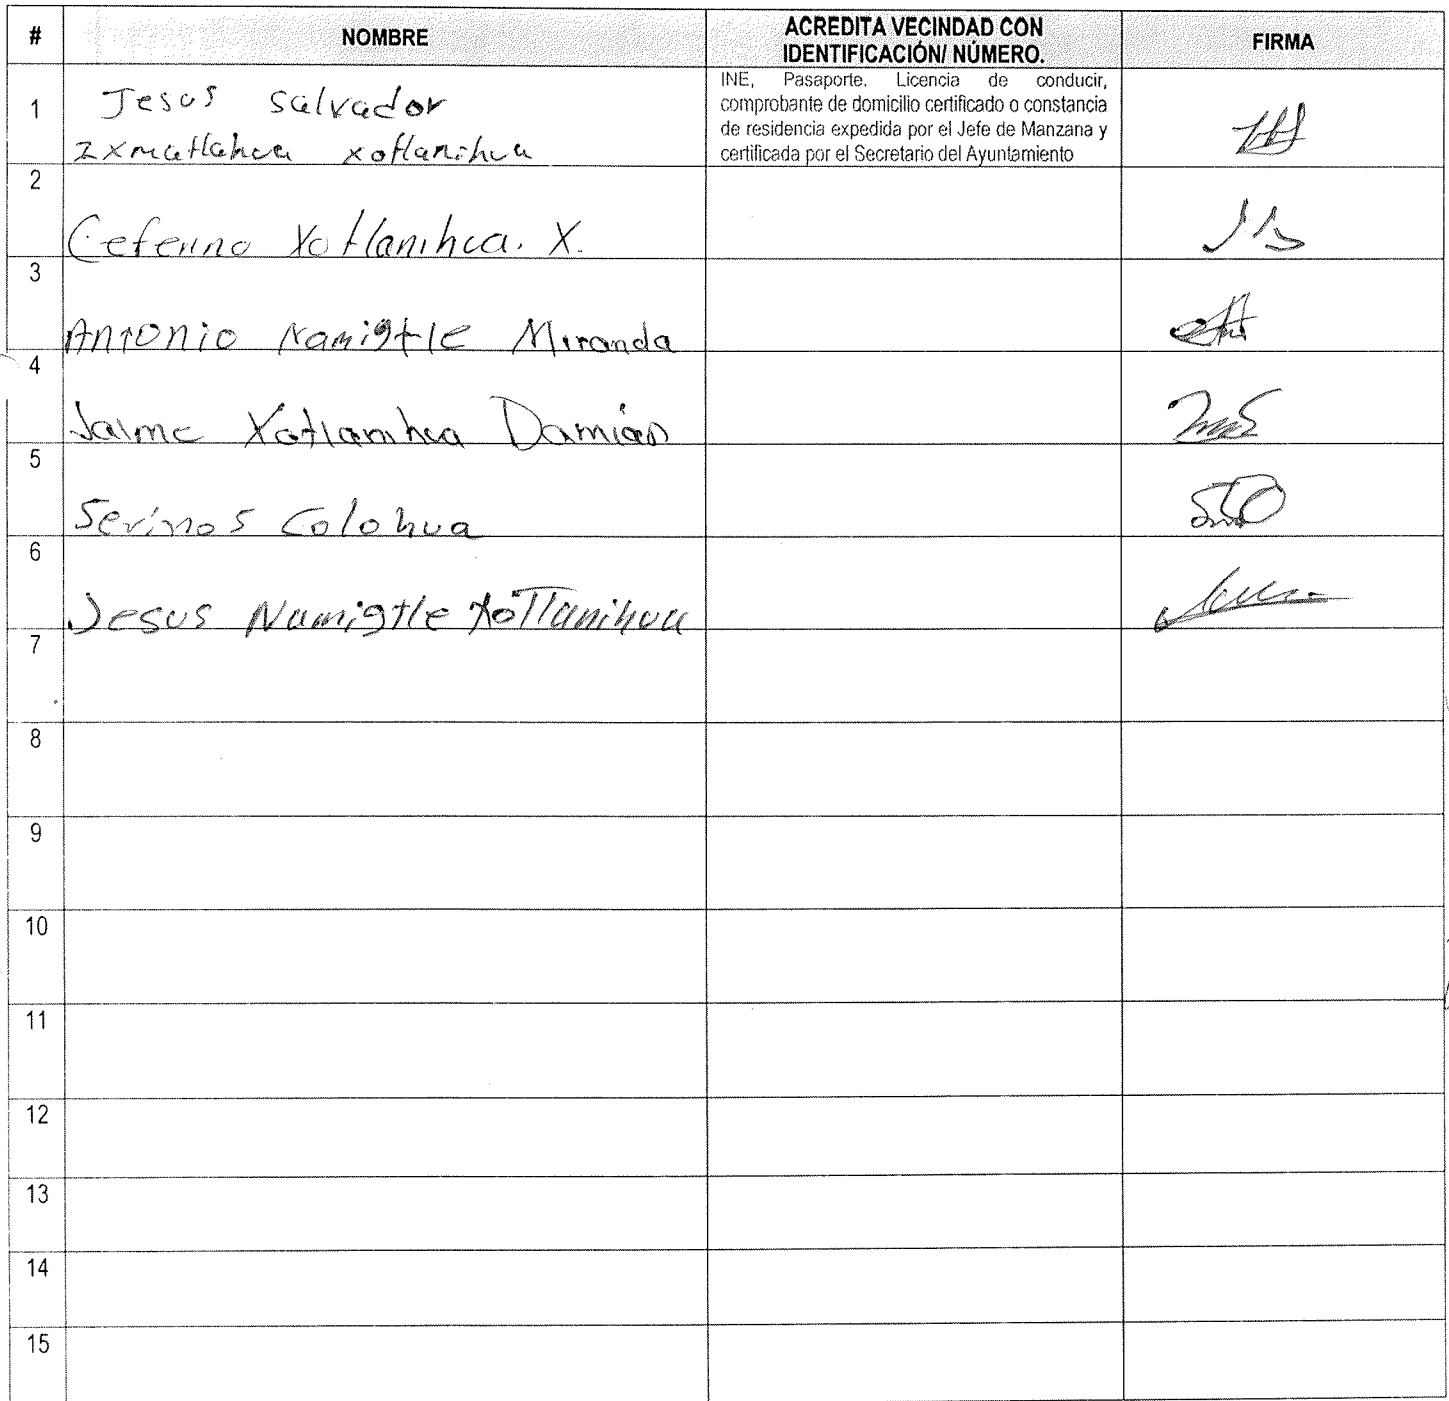 # NOMBRE ACREDITA VECINDAD CON IDENTIFICACIÓN/ NÚMERO. FIRMA
1
Jesus Salvador
zxmatlahua xotlanihua
INE, Pasaporte. Licencia de conducir,
comprobante de domicilio certificado o constancia
de residencia expedida por el Jefe de Manzana y
certificada por el Secretario del Ayuntamiento
2
Ceferino Xotlanihua. X.
3
Antonio Namigtle Miranda
4
Jaime Xotlanihua Damián
5
Serinos Colohua
6
Jesus Namigtle Xotlanihua
7
8
9
10
11
12
13
14
15